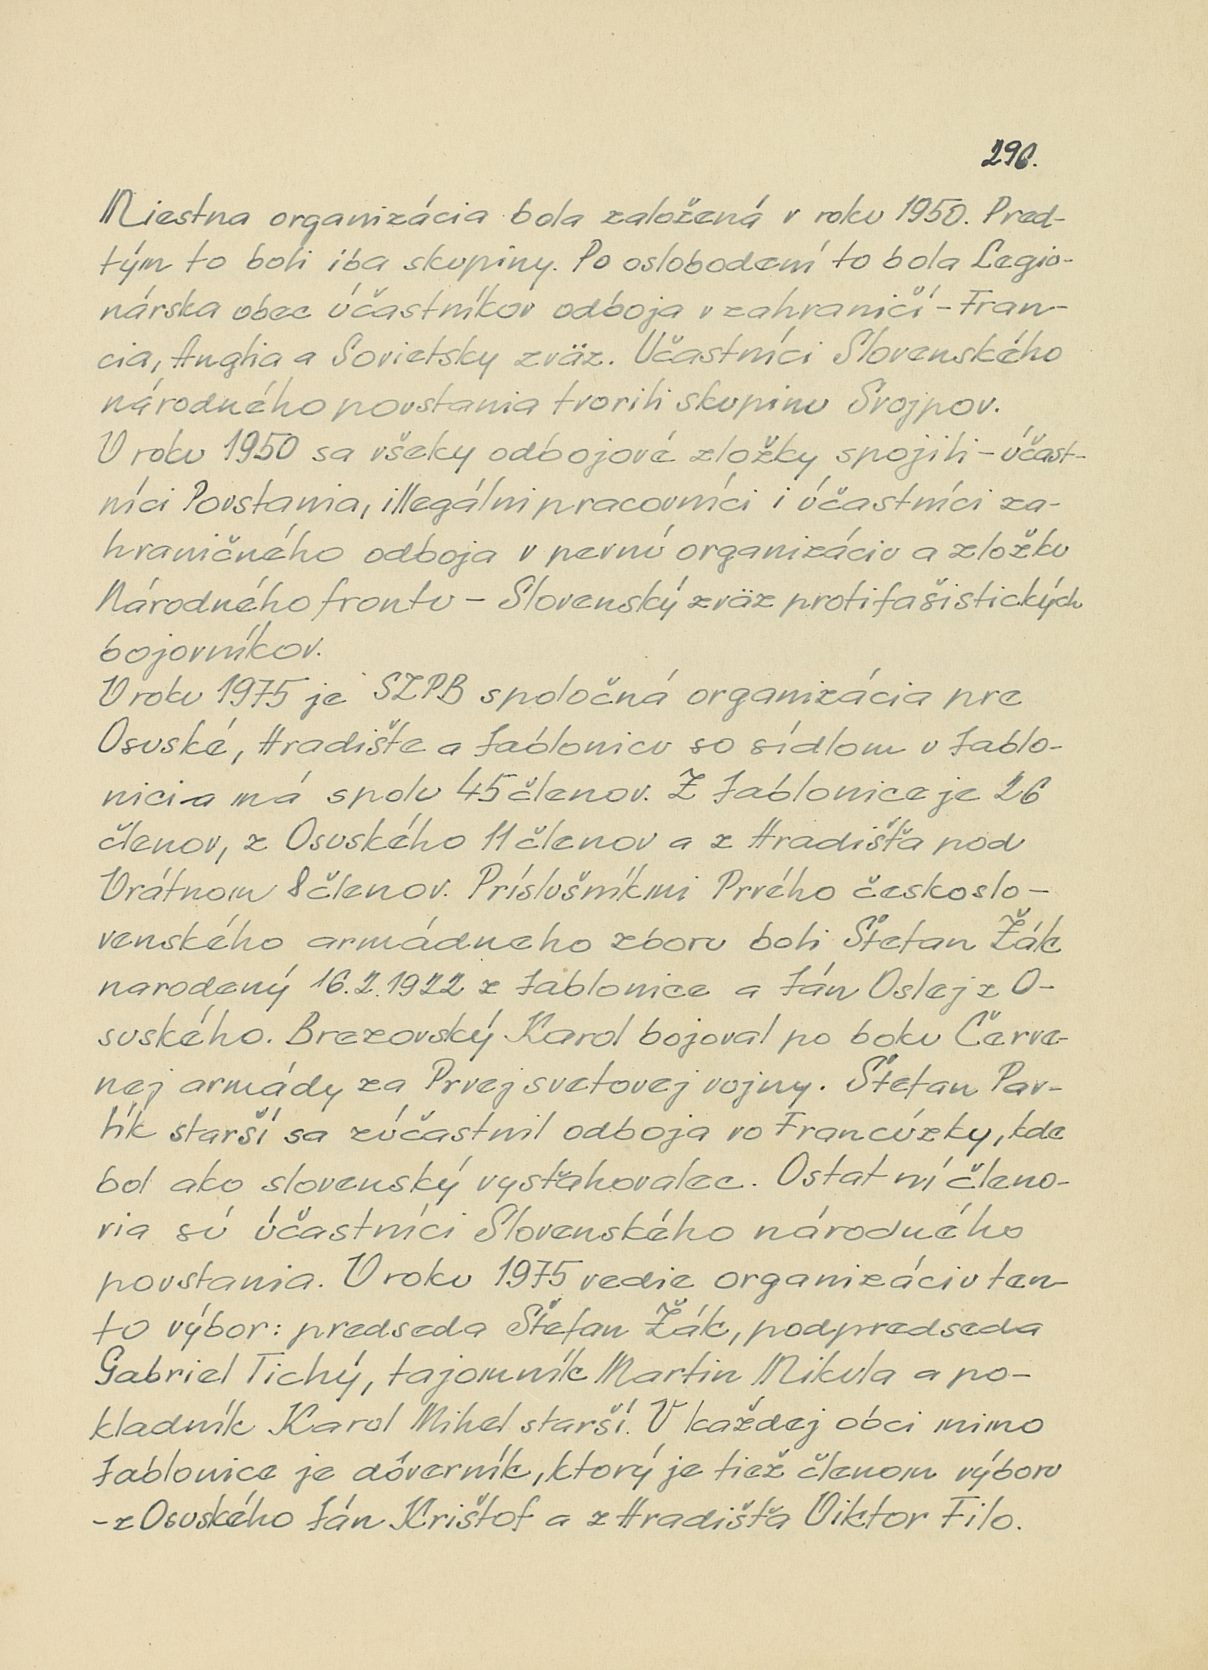 296.
Miestna organizácia bola založená v roku 1950. Pred-
tým to boli iba skupiny. Po oslobodení to bola Legio-
nárska obec účastníkov odboja v zahraničí - Fran-
cia, Anglia a Sovietsky zväz. Učastníci Slovenského
národného povstania tvorili skupinu Svojpov.
V roku 1950 sa všeky odbojové zložky spojili - účast-
níci Povstania, illegálni pracovníci i účastníci za-
hraničného odboja v pevnú organizáciu a zložku
Národného frontu - Slovenský zväz protifašistických
bojovníkov.
V roku 1975 je SZPB spoločná organizácia pre
Osuské, Hradište a Jablonicu so sídlom v Jablo-
nici a má spolu 45 členov. Z Jablonice je 26
členov, z Osuského 11 členov a z Hradišťa pod
Vrátnom 8 členov. Príslušníkmi Prvého českoslo-
venského armádneho zboru boli Štefan Žák
narodený 16.2.1922 z Jablonice a Ján Oslej z O-
suského. Brezovský Karol bojoval po boku Červe-
nej armády za Prvej svetovej vojny. Štefan Pav-
lík starší sa zúčastnil odboja vo Francúzky, kde
bol ako slovenský vysťahovalec. Ostatní členo-
via sú účastníci Slovenského národného
povstania. V roku 1975 vedie organizáciu ten-
to výbor: predseda Štefan Žák, podpredseda
Gabriel Tichý, tajomník Martin Mikula a po-
kladník Karol Mihel starší. V každej obci mimo
Jablonice je dóverník, ktorý je tiež členom výboru
- z Osuského Ján Krištof a z Hradišťa Viktor Filo.